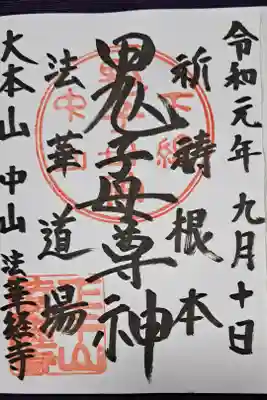 令和元年九月十日
祈祷根本
鬼子母尊神
法華道場
大本山中山法華経寺